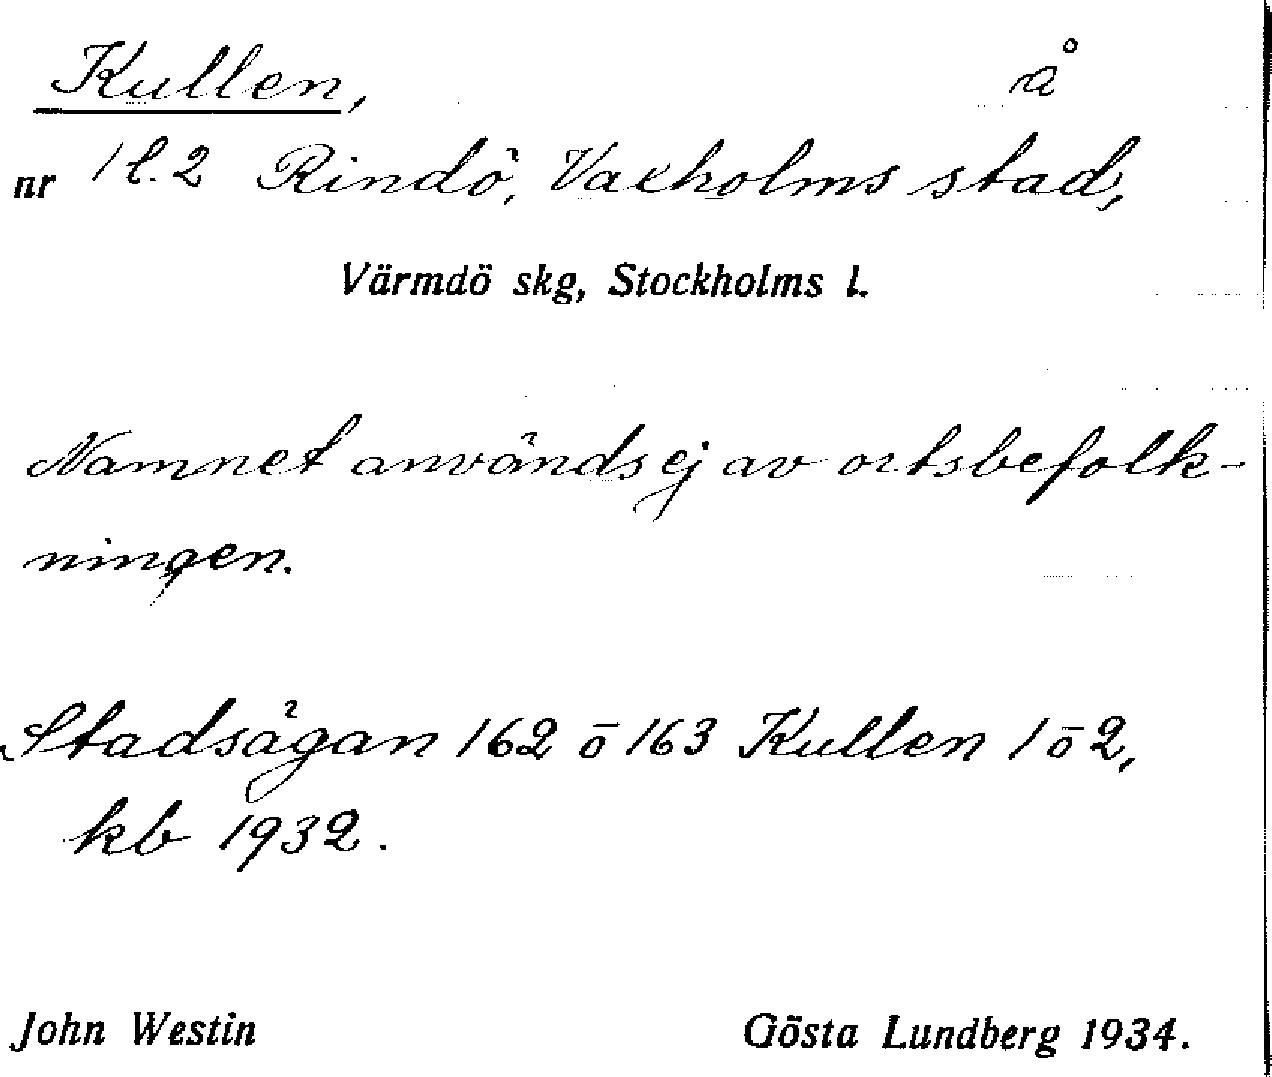 Kullen, å
nr 1 l. 2 Rindö, Vaxholms stad,
Värmdö skg, Stockholms l.
Namnet användsej av ortsbefolk-
ningen.
Stadsägan 162 ō 163 Kullen 1 ō 2,
kb 1932.
John Westin Gösta Lundberg 1934.